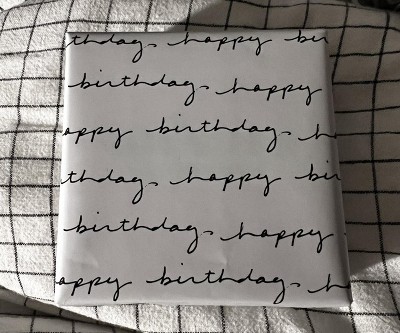 thday happy bir
birthday happy
appy birthday h
thday happy bir
birthday happy
appy birthday h